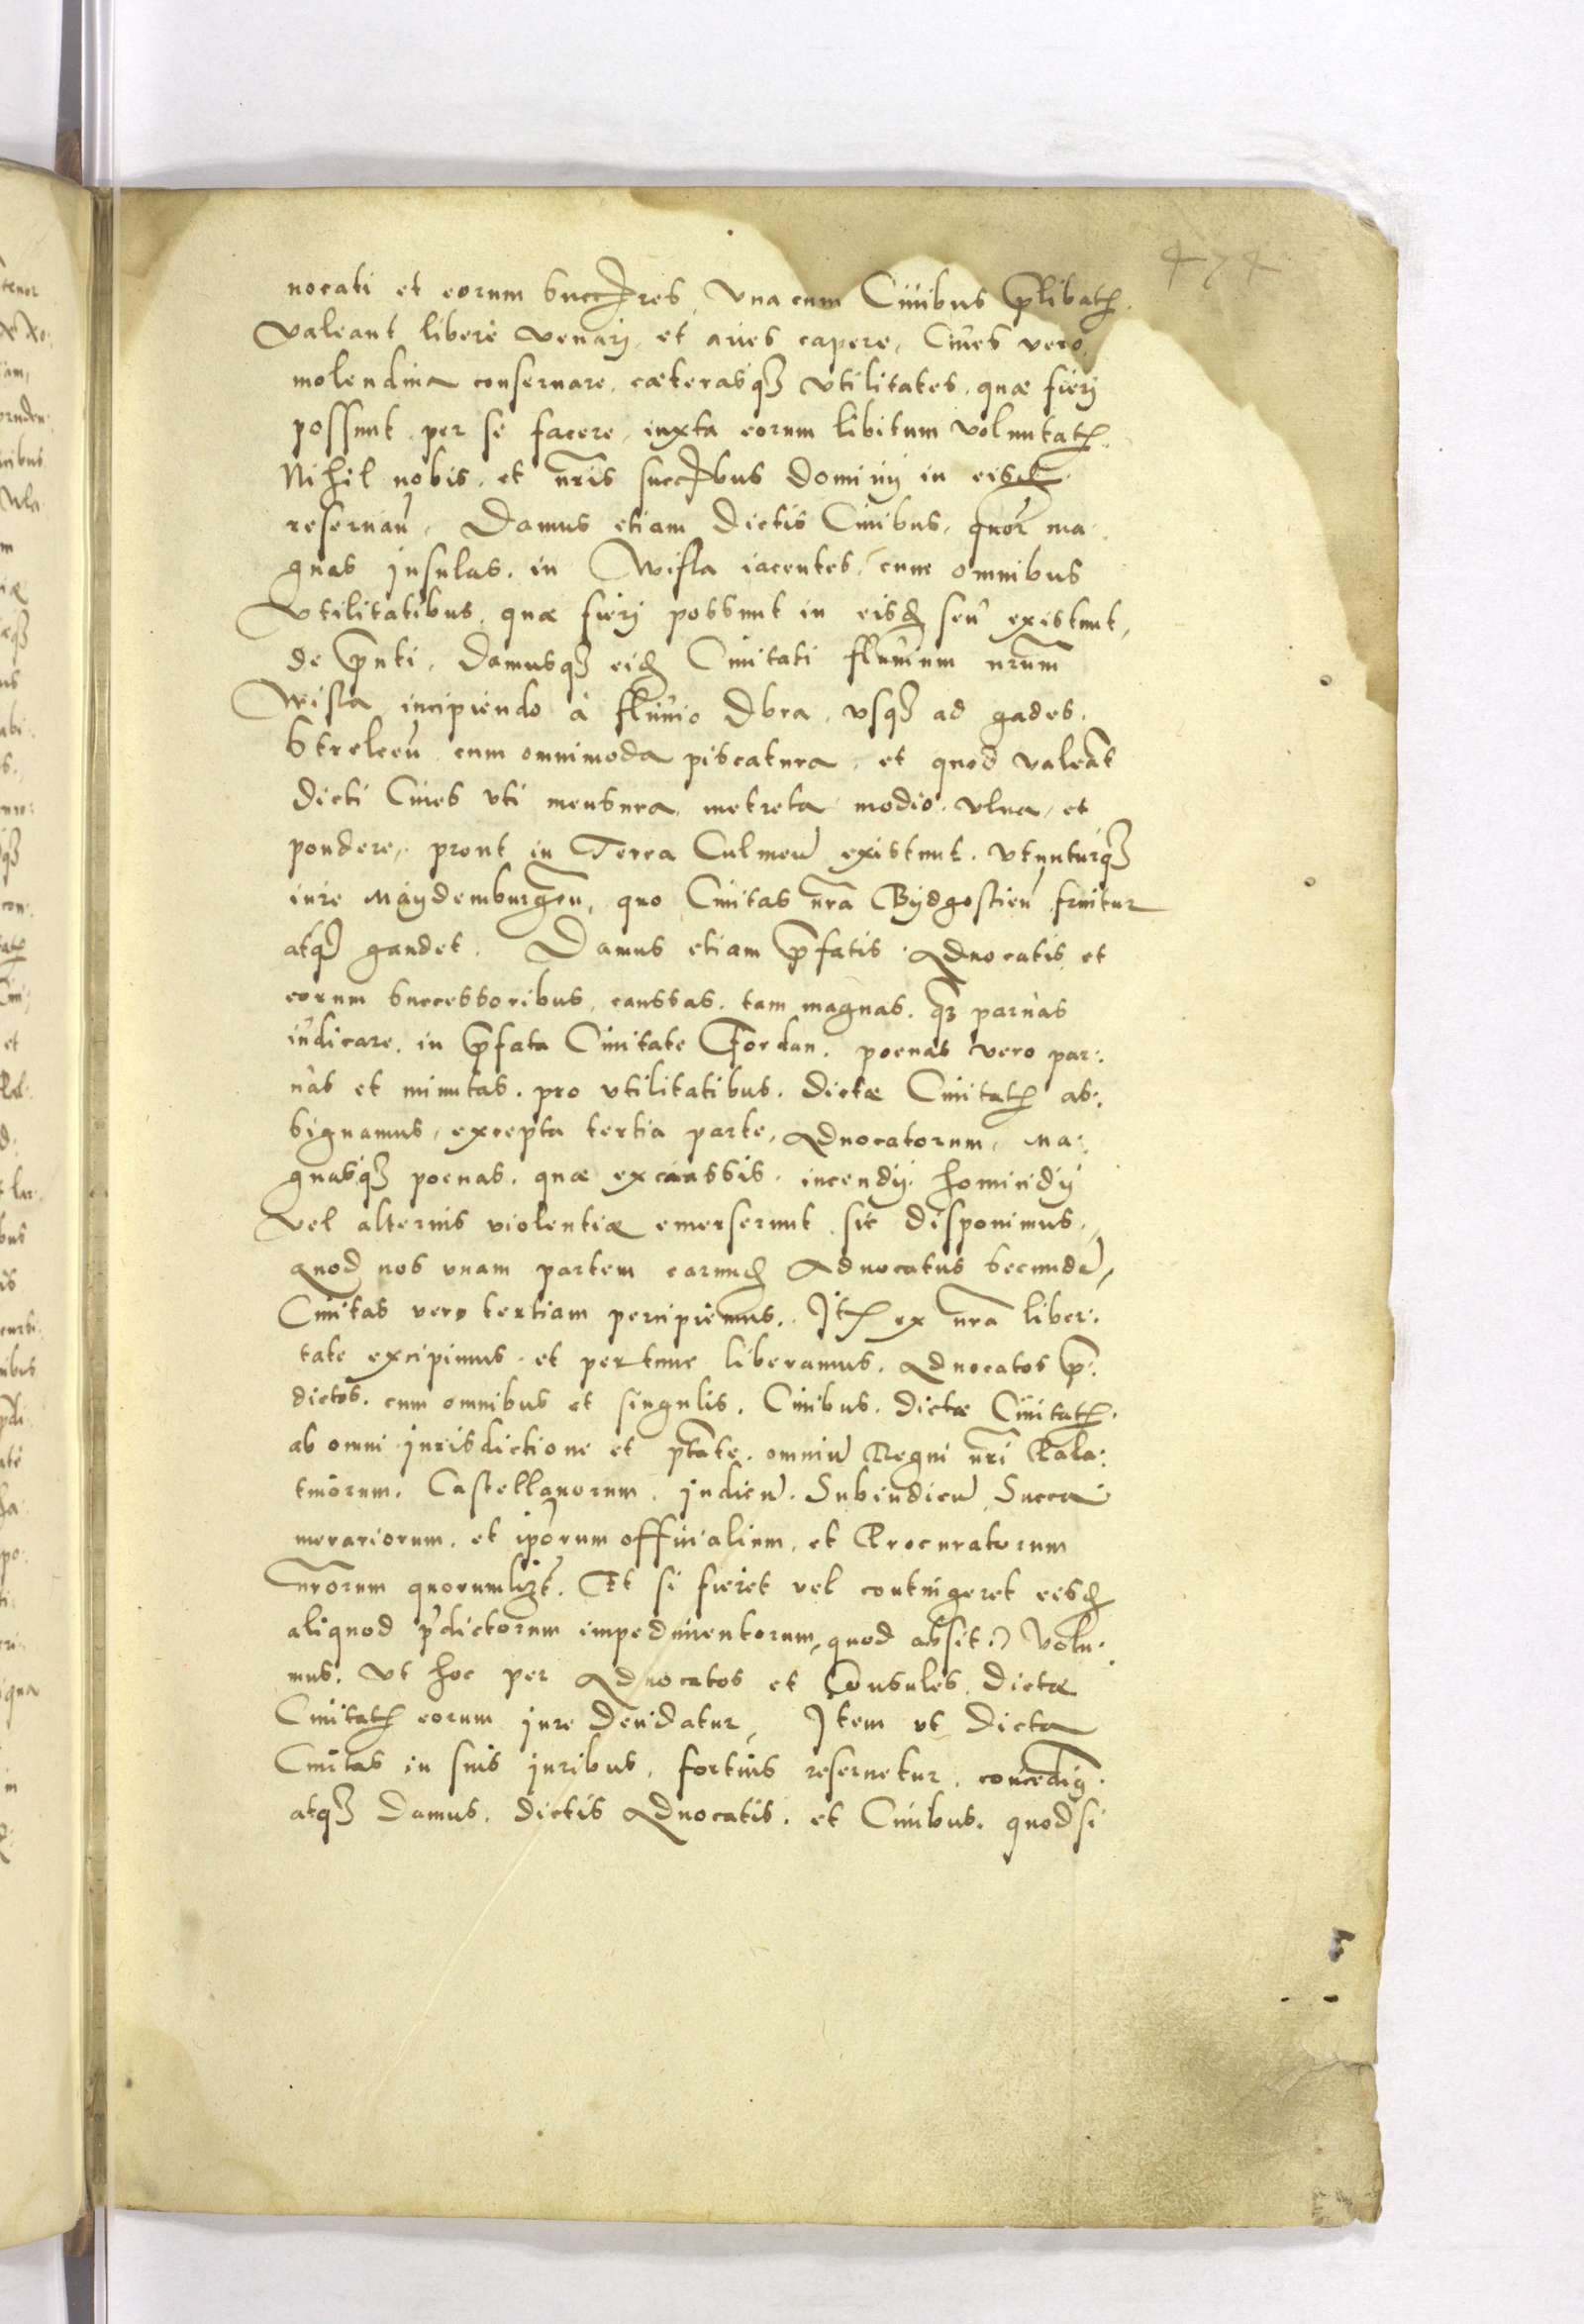 474
uocati et eorum succres, Vna cum Ciuibus p̄libatꝭ.
valeant liberè venarij et aues capere, Ciues vero
molendina conseruare, cæterasqꝫ vtilitates. quæ fierj
possunt per se facere, iuxta eorum libitum voluntatꝭ.
Nihil nobis. et nr̄is succbus Dominij in eisd
reseruañ. Damus etiam Dictis Ciuibus, quor ma
gnas jnsulas. in Wisla iacentes, cum omnibus
Vtilitatibus, quæ fierj possunt in eisd seu existunt,
de p̄nti. Damusqꝫ eid Ciuitati fluuium nr̄um
Wisla incipiendo à fluuio Dbra, vsqꝫ ad gades.
Streleceñ cum omnimoda piscatura, et quod valeāt
Dicti Ciues vti mensura, metreta modio. vlna, et
pondere, prout in Terra Culmeñ existunt. Vtunturqꝫ
iure Maydemburgeñ, quo Ciuitas nr̄a Bydgostieñ fruitur
atqꝫ gaudet. Damus etiam p̄fatis Aduocatis et
eorum successoribus, caussas. tam magnas. qꝫ paruas
iudicare. in p̄fata Ciuitate Fordan. poenas vero par:
uas et minutas. pro vtilitatibus. dictæ Ciuitatꝭ as:
signamus, excepta tertia parte, Aduocatorum, Ma:
gnasqꝫ poenas. quæ ex caussis. incendij. homicidij
vel alterius violentiæ emerserunt. sic disponimus.
quod nos vnam partem earund Aduocatus secundā,
Ciuitas vero tertiam percipiemus. Itꝭ ex nr̄a liber:
tate excipimus. et pertune liberamus. Aduocatos p̄:
dictos. cum omnibus et singulis. Ciuibus. dictæ Ciuitatꝭ.
ab omni jurisdictione et ptāte. omniū Regni nr̄i Pala:
tinorum. Castellanorum. judicū. Subiudicū Succa
merariorum. et ipōrum officialium, et Procuratorum
nr̄orum quorumlizt. Et si fieret vel contingeret eisd
aliquod p̄dictorum impedimentorum, quod absit) Volu:
mus. Vt hoc per Aduocatos et Consules dictæ
Ciuitatꝭ eorum jure Deuidatur, Item vt dicta
Ciuitas in suis juribus, fortius reseruetur. concedim.
atqꝫ Damus. dictis Aduocatis. et Ciuibus. quod si